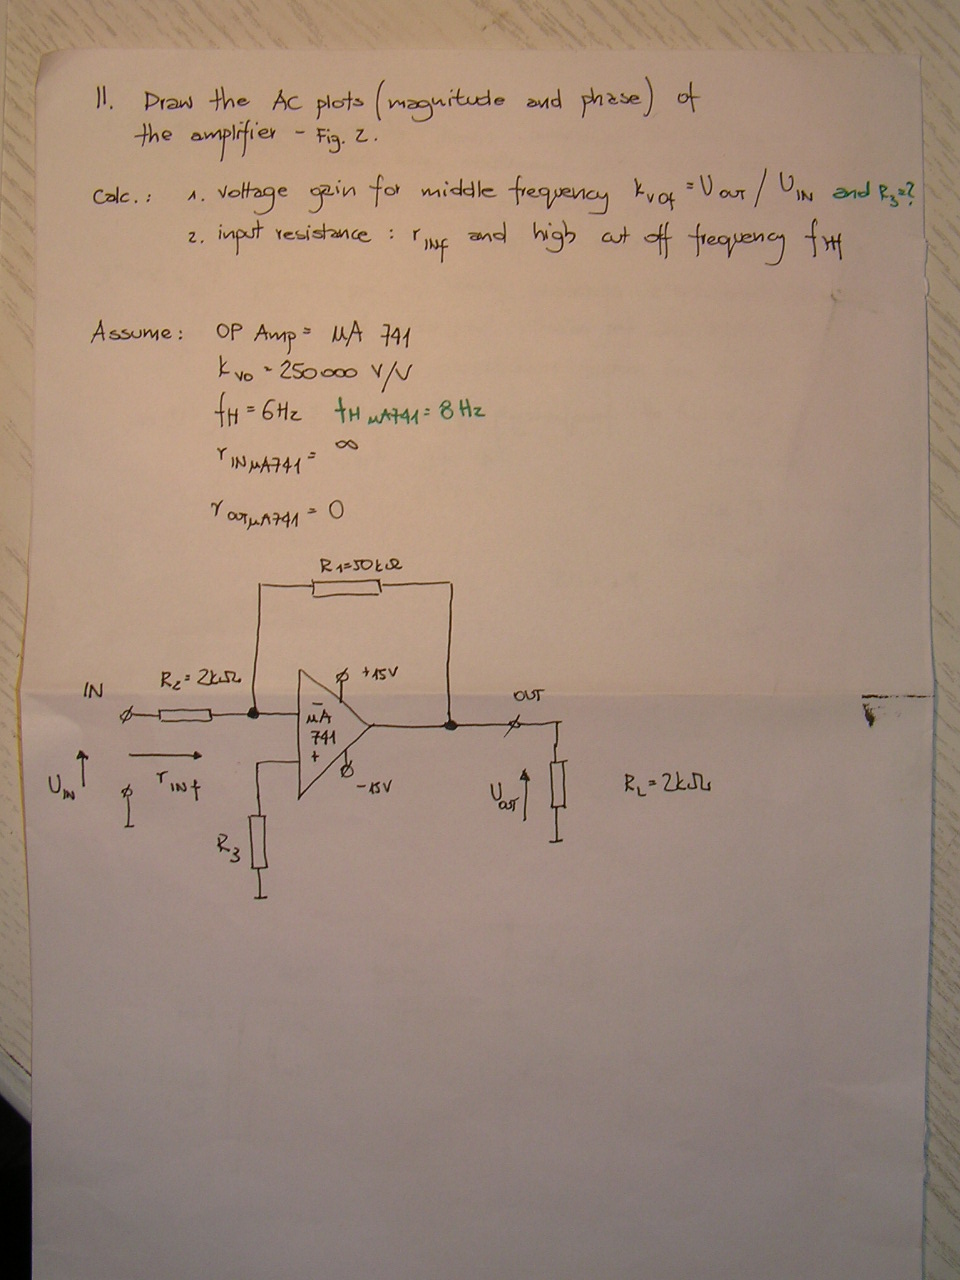 11. Draw the AC plots (magnitude and phase) of
the amplifier - Fig. 2.
Calc.: 1. voltage gain for middle frequency kvof = UOUT / UIN and R3=?
2. input resistance : rINf and high cut off frequency fHf
Assume: OP Amp = μA 741
kvo = 250000 V/V
fH = 6Hz fH μA741 = 8Hz
rIN μA741 = ∞
rOUT μA741 = 0
R1=50kΩ
R2=2kΩ
+15V
IN
OUT
-
μA
741
+
UIN
rINf
-15V
UOUT
RL=2kΩ
R3